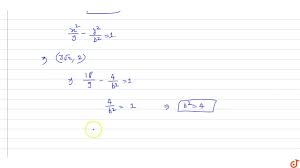 x²/9 - y²/b² = 1
⇒ (3√2, 2)
⇒ 18/9 - 4/b² = 1
4/b² = 1 ⇒ b² = 4